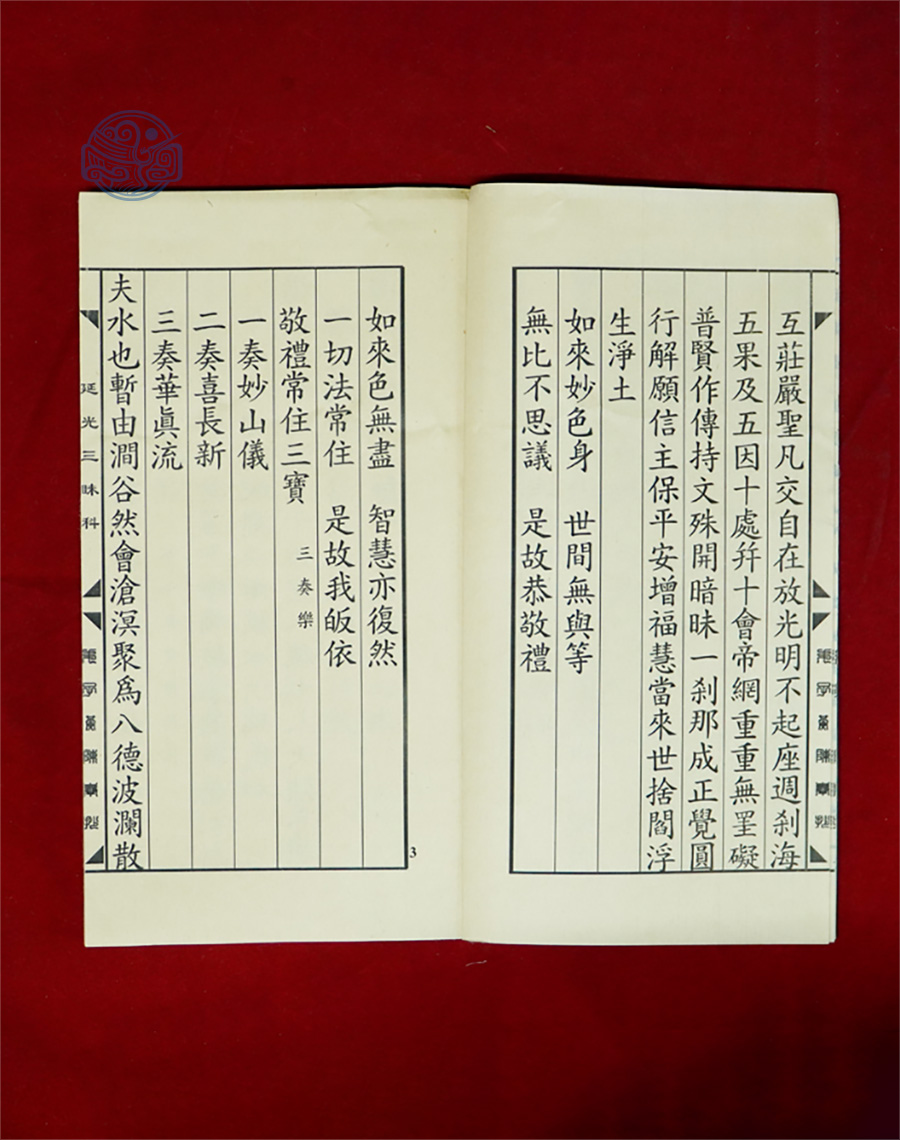 互莊嚴聖凡交自在放光明不起座週刹海
五果及五因十處幷十會帝網重重無罣礙
普賢作傳持文殊開暗昧一刹那成正覺圓
行解願信主保平安增福慧當來世捨閻浮
生淨土
如來妙色身　世間無與等
無比不思議　是故恭敬禮
如來色無盡　智慧亦復然
一切法常住　是故我皈依
敬禮常住三寶　三奏樂
一奏妙山儀
二奏喜長新
三奏華眞流
夫水也暫由澗谷然會滄溟聚爲八德波瀾散
延光三昧科
3